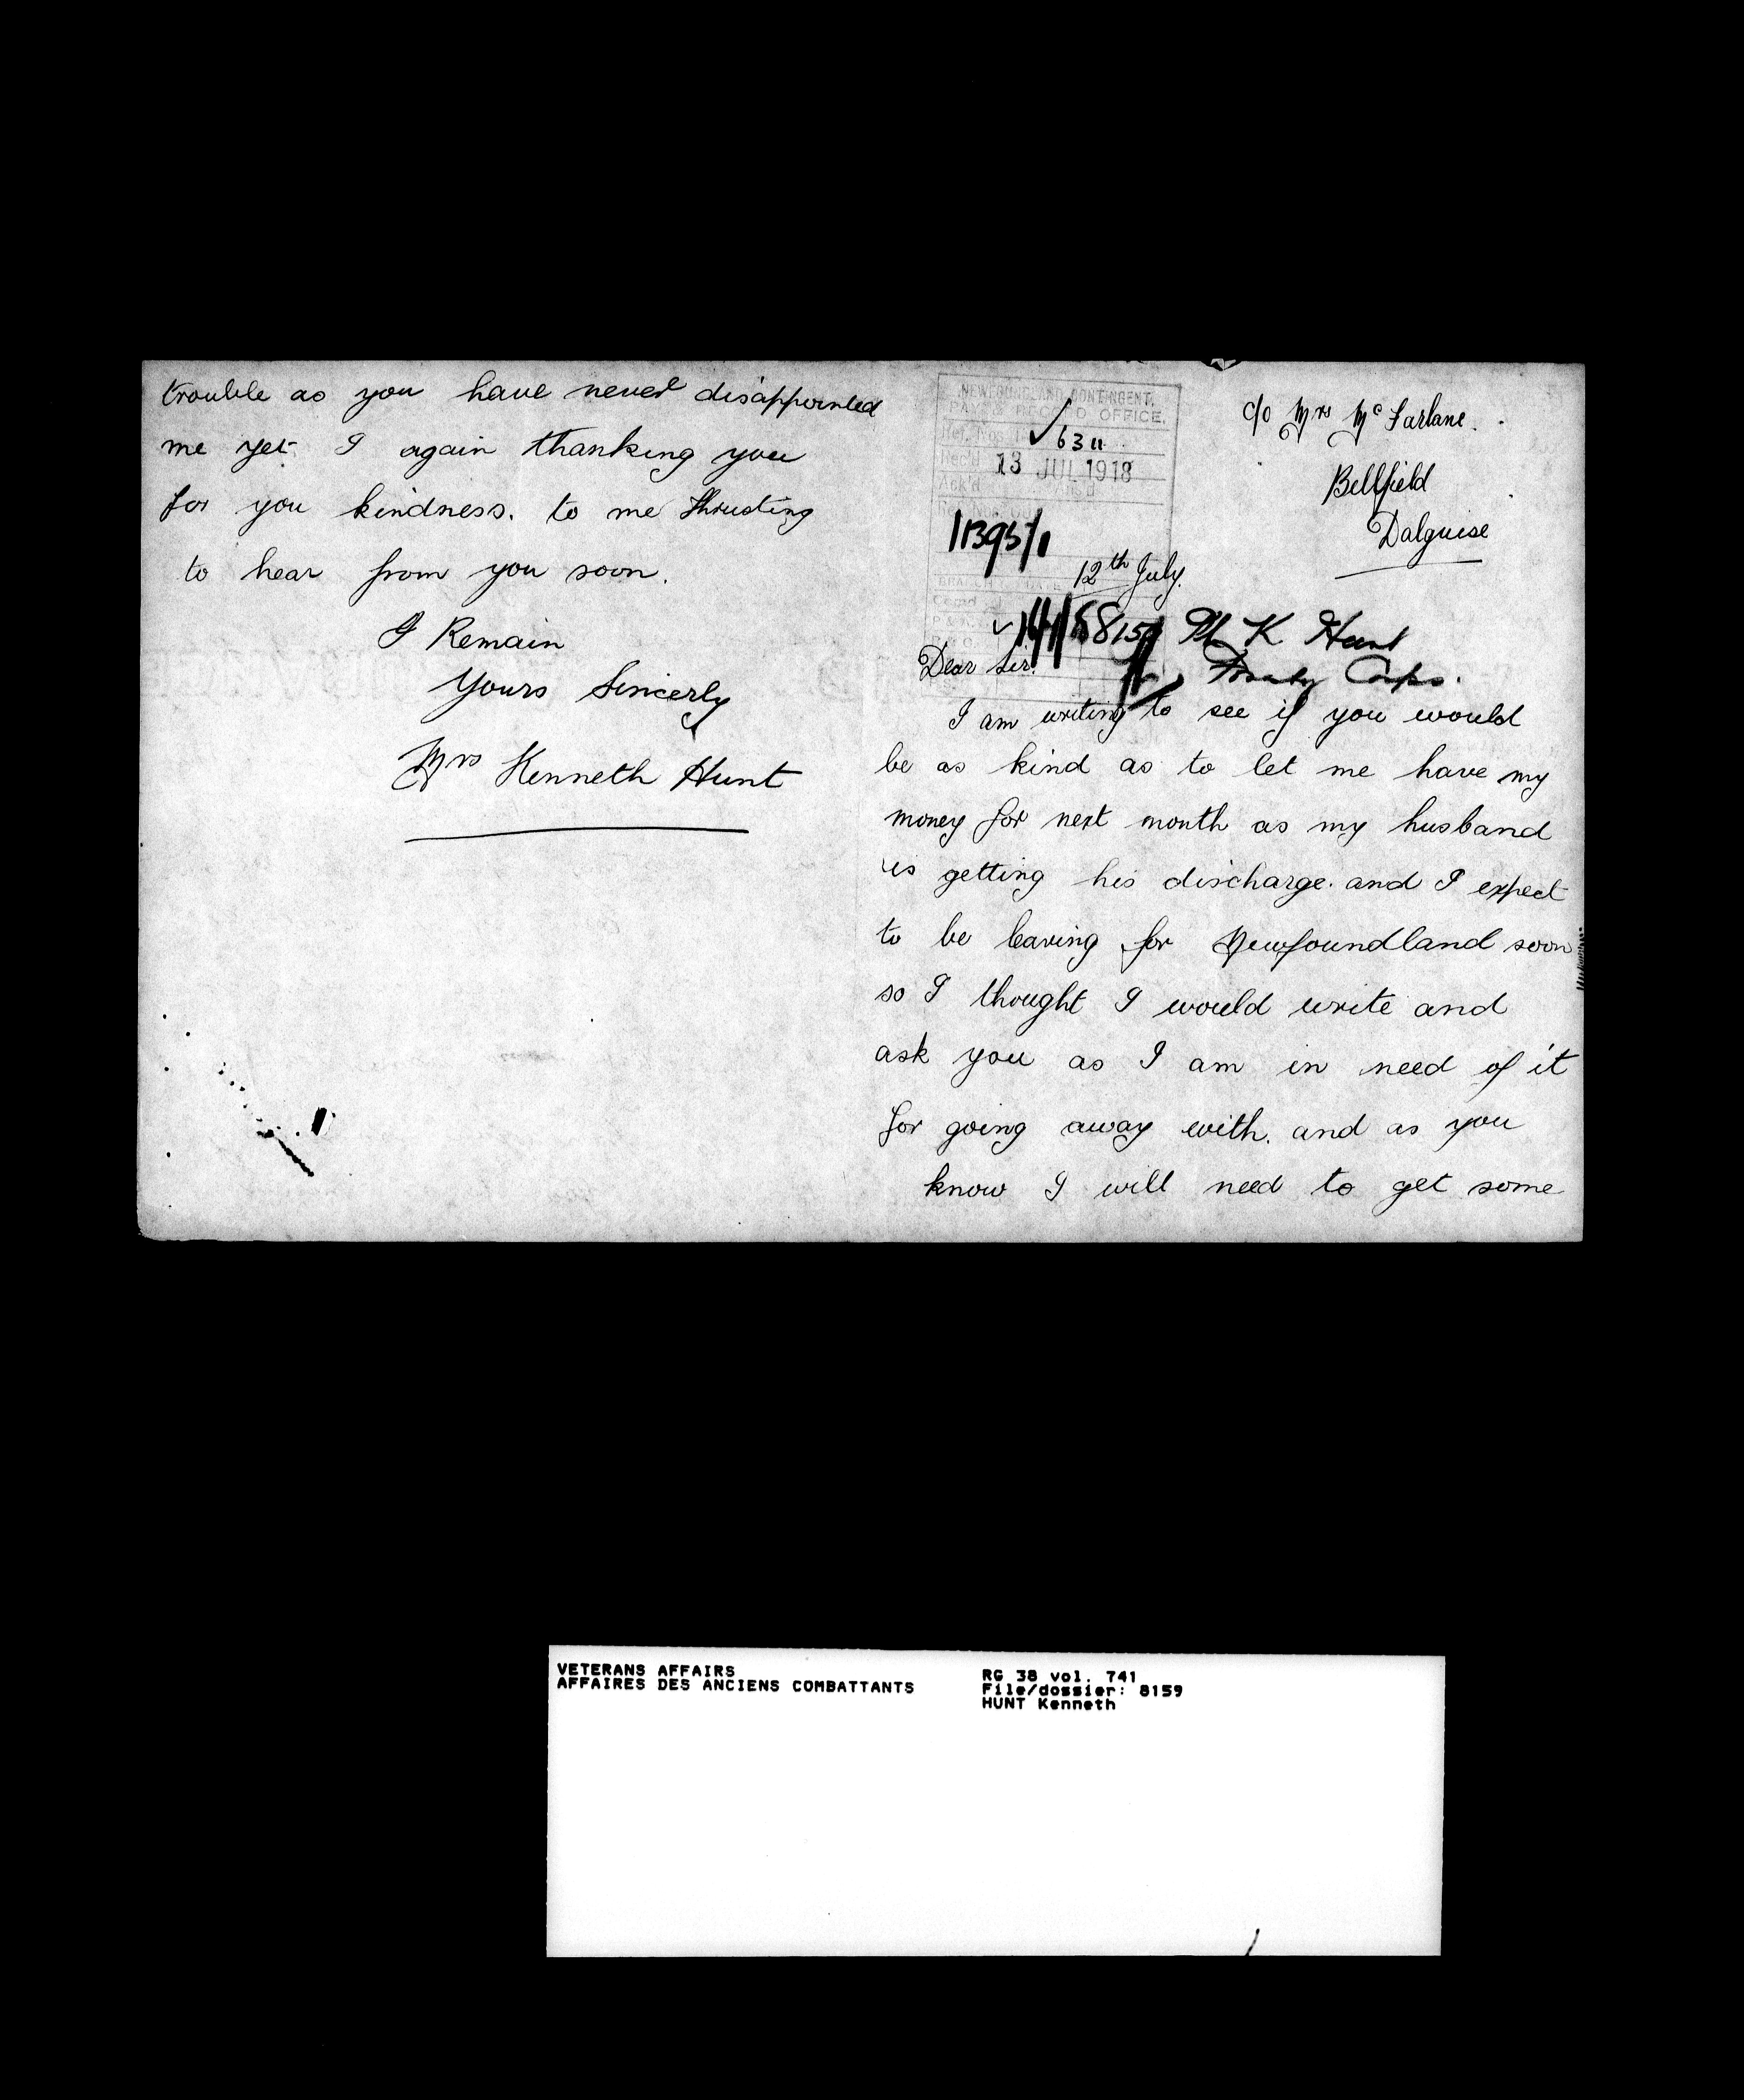 trouble as you have never disappointed
me yet I again thanking you
for you kindness. to me thrusting
to hear from you soon.
I Remain
Yours Sincerly
Mrs Kenneth Hunt
NEWFOUNDLAND CONTINGENT.
PAY & RECORD OFFICE.
13 JUL 1918
c/o Mrs McFarlane.
Bellfield
Dalguise
12th July.
K Hunt
Dear Sir.
Corps.
I am writing to see if you would
be as kind as to let me have my
money for next month as my husband
is getting his discharge. and I expect
to be leaving for Newfoundland soon
so I thought I would write and
ask you as I am in need of it
for going away with. and as you
know I will need to get some
VETERANS AFFAIRS
AFFAIRES DES ANCIENS COMBATTANTS
RG 38 vol. 741
File/dossier: 8159
HUNT Kenneth